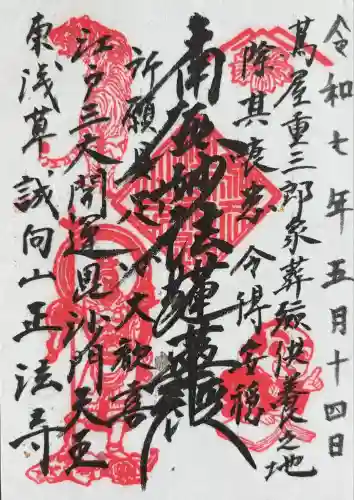 令和七年五月十四日
蔦屋重三郎家葬殯供養之地
除其衰患令得安穏
南無妙法蓮華経
祈願具足心大歓喜
江戸三大開運毘沙門天王
東浅草誠向山正法寺